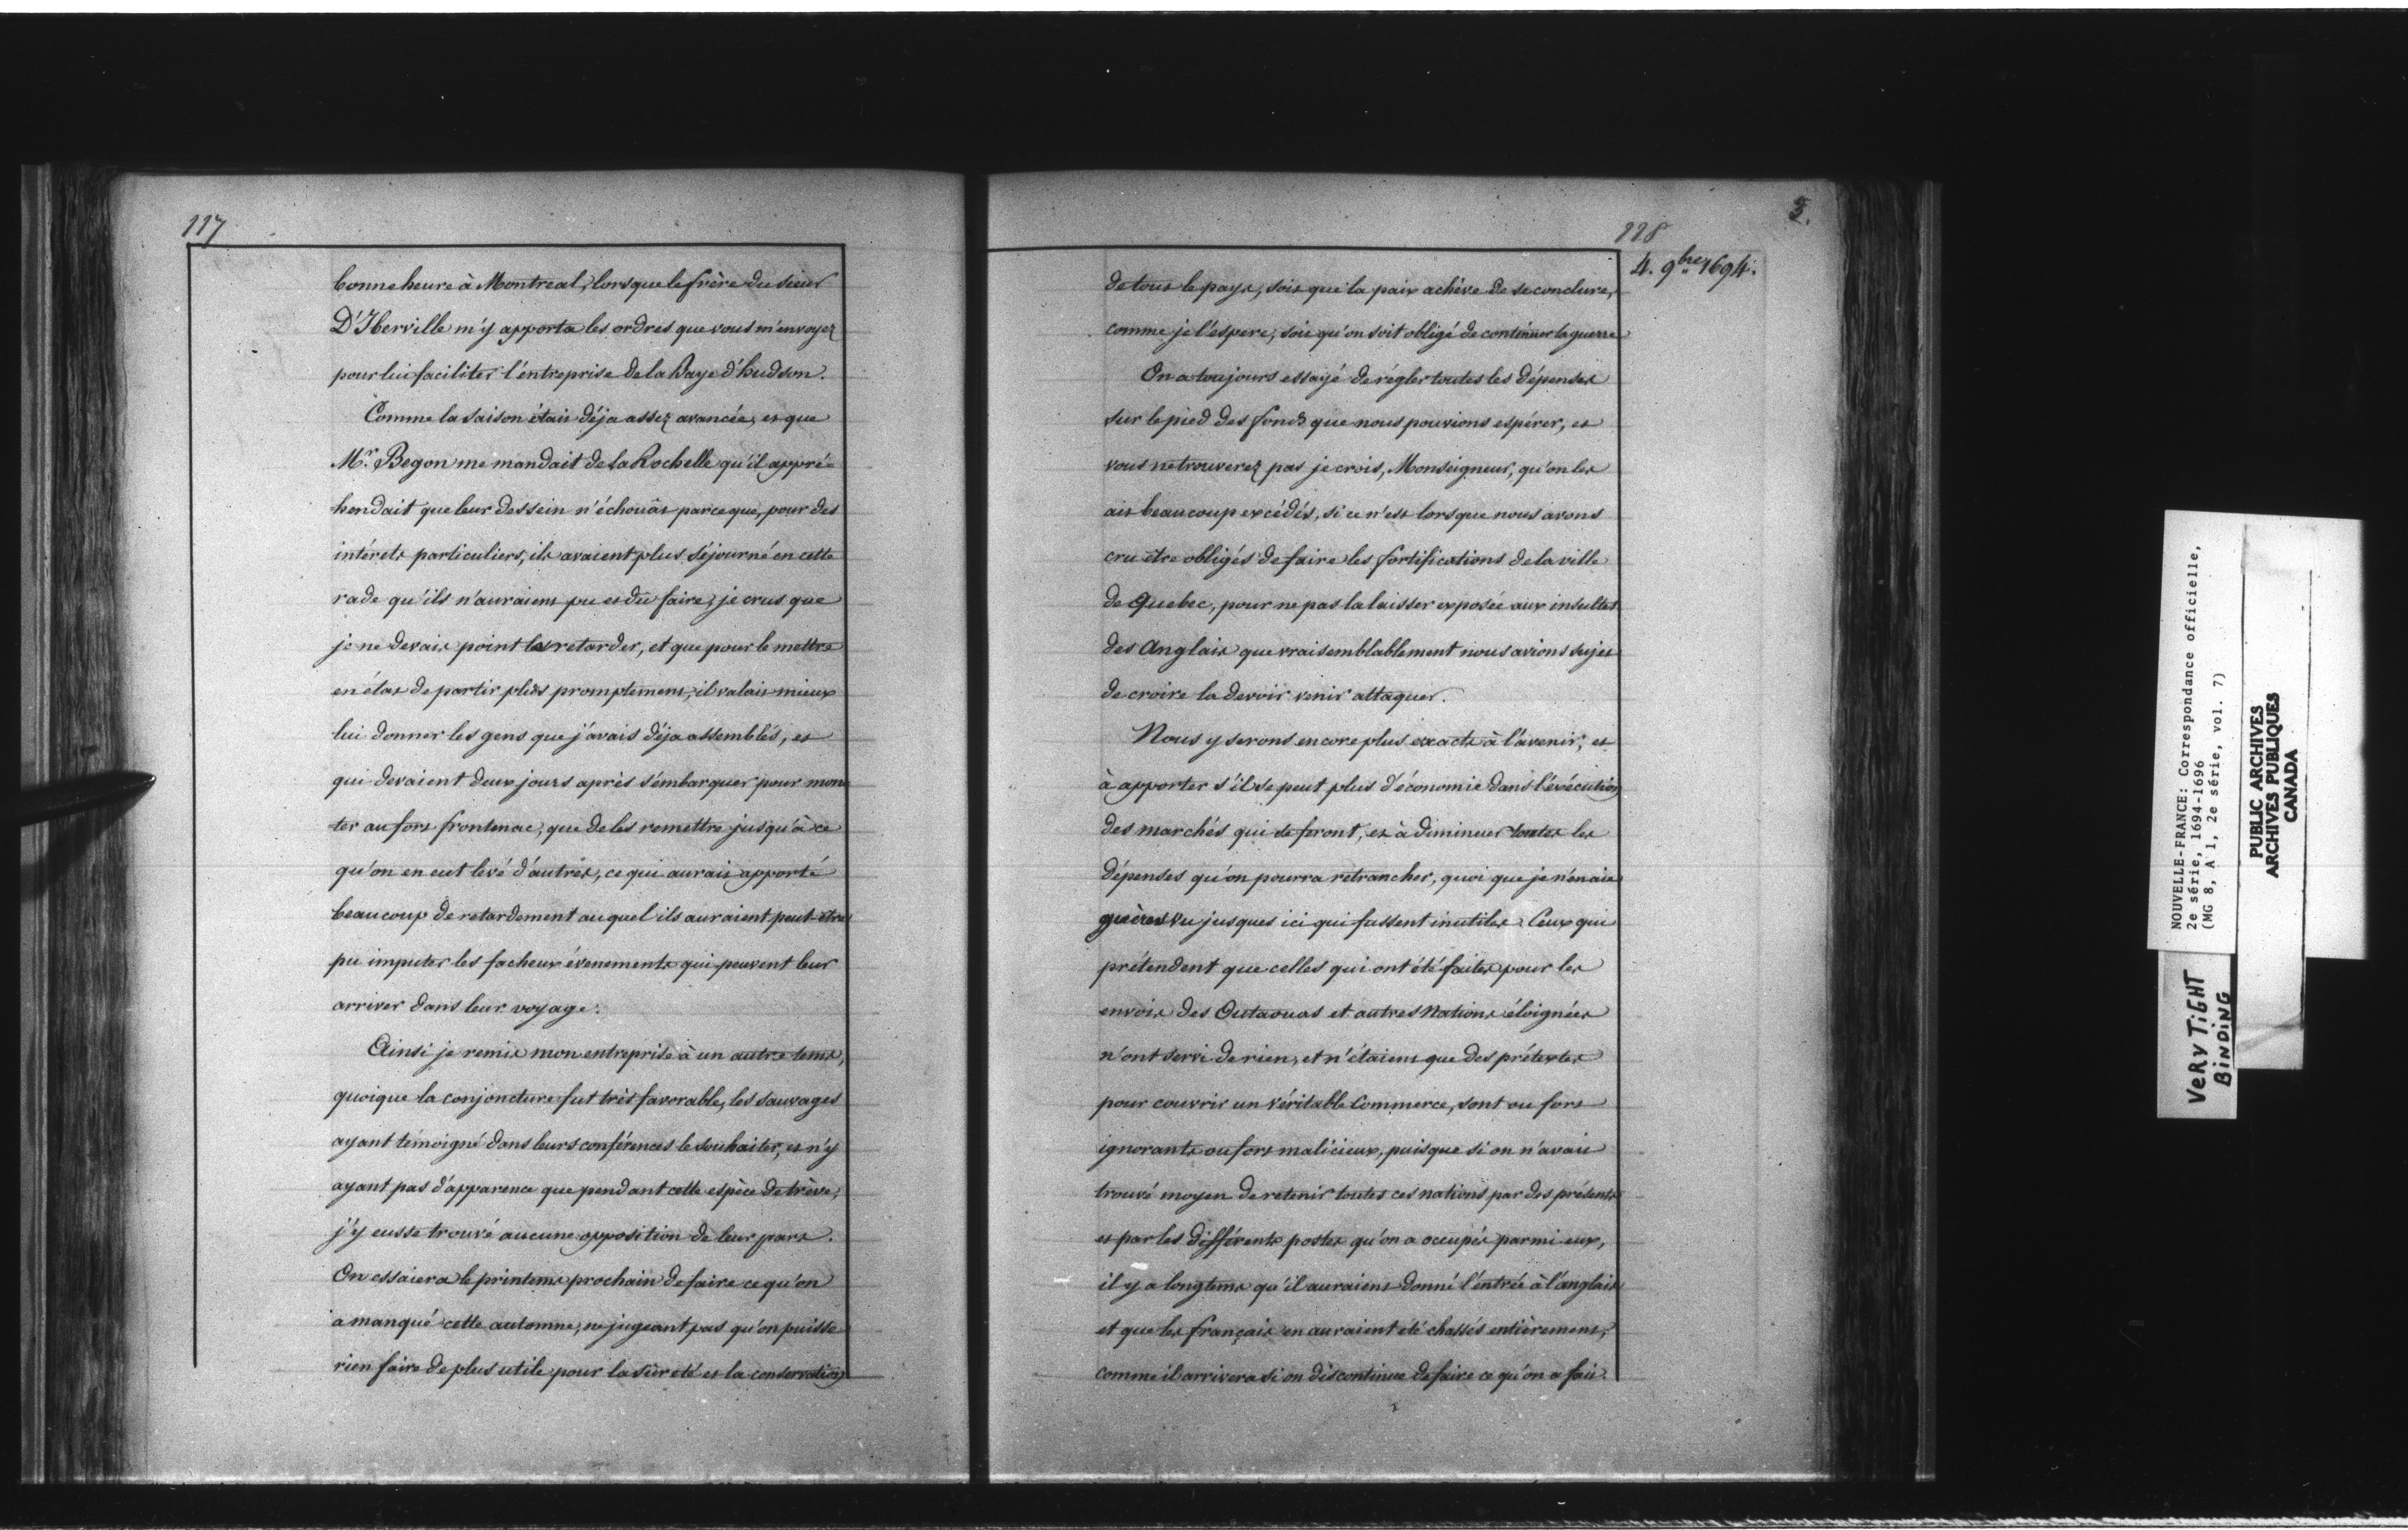 117
bonne heure à Montreal, lorsque le frère du sieur
D'Iberville m'y apporta les ordres que vous m'envoyez
pour lui faciliter l'entreprise de la Baye d'hudson.
Comme la saison était déja assez avancée, et que
Mr. Begon me mandait de La Rochelle qu'il appré-
hendait que leur dessein n'échouât parce que, pour des
intérets particuliers, ils avaient plus séjourné en cette
rade qu'ils n'auraient pu et dû faire, je crus que
je ne devais point les retarder, et que pour le mettre
en état de partir plus promptement, il valait mieux
lui donner les gens que j'avais déja assemblés, et
qui devaient deux jours après s'embarquer pour mon-
ter au fort frontenac, que de les remettre jusqu'à ce
qu'on en eut levé d'autres, ce qui aurait apporté
beaucoup de retardement auquel ils auraient peut-être
pu imputer les facheux évenements qui peuvent leur
arriver dans leur voyage.
Ainsi je remis mon entreprise à un autre tems,
quoique la conjoncture fut très favorable, les sauvages
ayant témoigné dans leurs conférences le souhaiter, et n'y
ayant pas d'apparence que pendant cette espèce de trève,
j'y eusse trouvé aucune opposition de leur part.
On essaiera le printems prochain de faire ce qu'on
a manqué cette automne, ne jugeant pas qu'on puisse
rien faire de plus utile pour la sûreté et la conservation
118
3.
4. 9bre 1694.
de tout le pays, soit que la paix achève de se conclure,
comme je l'espere, soit qu'on soit obligé de continuer la guerre
On a toujours essayé de régler toutes les dépenses
sur le pied des fonds que nous pouvions espérer, et
vous ne trouverez pas je crois, Monseigneur, qu'on les
ait beaucoup excédés, si ce n'est lorsque nous avons
cru être obligés de faire les fortifications de la ville
de Quebec, pour ne pas la laisser exposée aux insultes
des Anglais que vraisemblablement nous avions sujet
de croire la devoir venir attaquer.
Nous y serons encore plus exacts à l'avenir, et
à apporter s'il se peut plus d'économie dans l'exécution
des marchés qui se feront, et à diminuer toutes les
dépenses qu'on pourra retrancher, quoi que je n'en aie
guères vu jusques ici qui fussent inutiles. Ceux qui
prétendent que celles qui ont été faites pour les
envois des Outaouas et autres Nations éloignées
n'ont servi de rien, et n'étaient que des prétextes
pour couvrir un véritable Commerce, sont ou fort
ignorants ou fort malicieux, puisque si on n'avait
trouvé moyen de retenir toutes ces nations par des présents
et par les différents postes qu'on a occupés parmi eux,
il y a longtems qu'il auraient donné l'entrée à l'anglais
et que les français en auraient été chassés entièrement,
comme il arrivera si on discontinue de faire ce qu'on a fait.
NOUVELLE-FRANCE: Correspondance officielle,
2e série, 1694-1696
(MG 8, A 1, 2e série, vol. 7)
PUBLIC ARCHIVES
ARCHIVES PUBLIQUES
CANADA
VERY TIGHT
BINDING